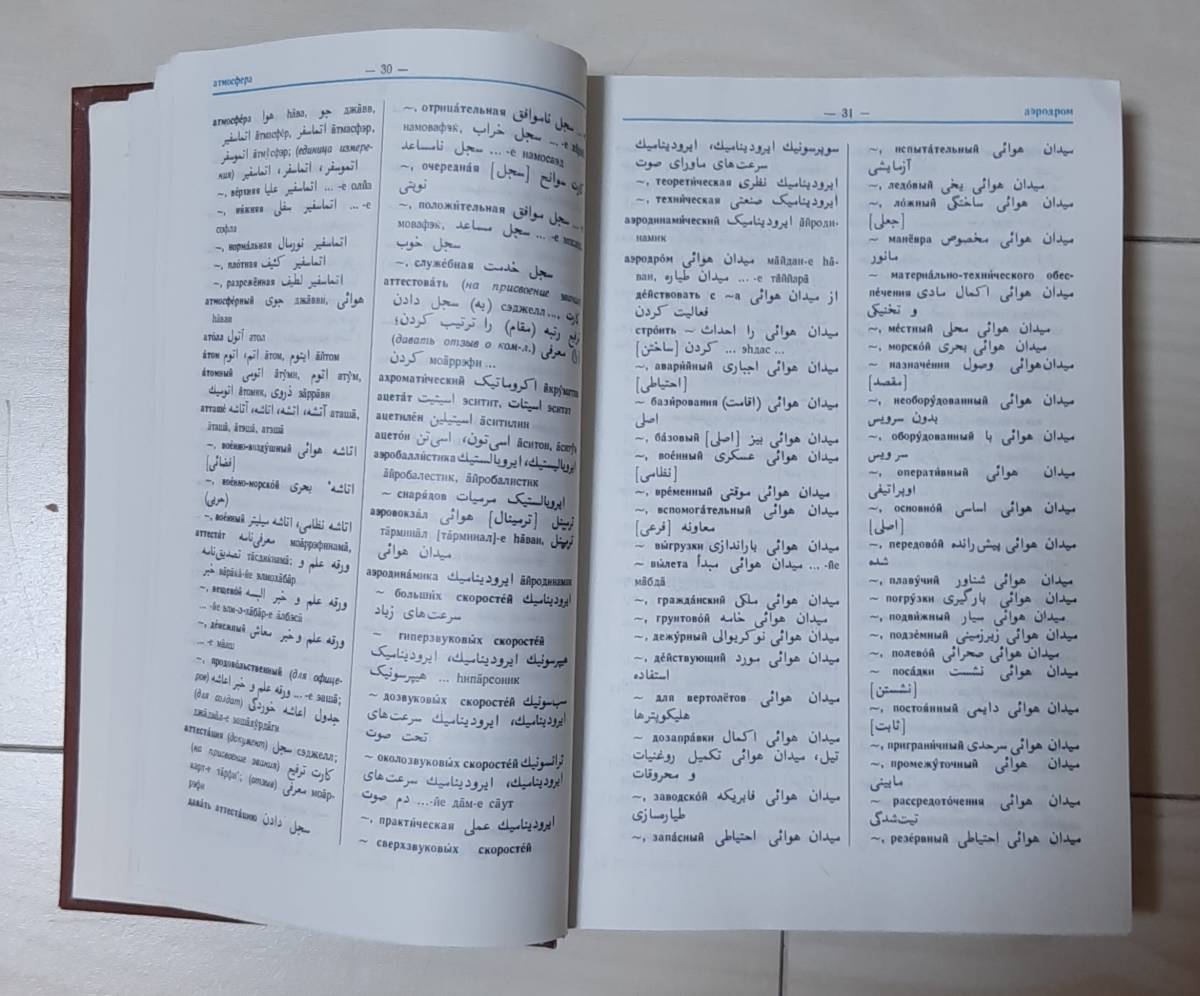 атмосфера
— 30 —
атмосфе́ра هوا hāва, جو джавв,
اتماسفیر а̄тмасфе́р, اتماسفر а̄тмасфэр,
اتموسفر а̄тмосфэр; (единица измере-
ния) اتموسفر، اتماسفر، اتماسفیر
~, ве́рхняя اتماسفیر علیا ... -е олйа
~, ни́жняя اتماسفیر سفلی ... -е
софла
~, норма́льная اتماسفیر نورمال
~, пло́тная اتماسفیر کثیف
~, разрежённая اتماسفیر لطیف
атмосфе́рный جوی джавви, هوائی
hāваи
ато́лл اتول атол
а́том اتم، اتوم а̄том, ایتوم а̄йтом
а́томный اتومی а̄туми, اتوم а̄ту́м,
اتومیك а̄томик, ذروی зāррāви
атташе́ آتشه، اتشه، اتاشه، آتاشه аташа̄,
~, вое́нно-возду́шный اتاشه هوائی
[فضائی]
~, вое́нно-морско́й اتاشه بحری
(حربی)
~, вое́нный اتاشه نظامی، اتاشه میلیتر
аттеста́т معرفی‌نامه моа̄ррэфинама̄,
تصدیق‌نامه тāсдикнама̄; ورقه علم و
خبر вāрāкā-йе элмохāбāр
~, вещево́й ورقه علم و خبر البسه
... -йе элм-о-хāбāр-е а̄лбэса̄
~, де́нежный ورقه علم و خبر معاش
... -е маāш
~, продово́льственный (для офице-
ров) ورقه علم و خبر اعاشه ... -е эаша̄;
(для солдат) جدول اعاشه خوردگی
аттеста́ция (документ) سجل сэджелл;
(на присвоение звания) کارت ترفیع
карт-е тāрфи'; (отзыв) معرفی моа̄р-
рэфи
дава́ть аттеста́цию سجل دادن
~, отрица́тельная سجل ناموافق ... -е
намовафэк, سجل خراب ... -е
سجل نامساعد ... -е намосаэд
~, очередна́я [سجل] کارت سوانح
نوبتی
~, положи́тельная سجل موافق ... -е
мовафэк, سجل مساعد ... -е
سجل خوب
~, служе́бная سجل خدمت
аттестова́ть (на присвоение звания)
(به) سجل دادن сэджелл ..., کارت
ترفیع رتبه (مقام) را ترتیب کردن؛
(давать отзыв о ком-л.) معرفی (را)
کردن моа̄ррэфи ...
ахромати́ческий اکروماتیک а̄кру́матик
ацета́т اسیتیت эситит, استات эстат
ацетиле́н اسیتیلین а̄ситилин
ацето́н اسی‌تون، اسی‌تن а̄ситон,
аэробалли́стика ایروبالیستیك، ایروبالستیك
а̄йробалестик, а̄йробалистик
~ снаря́дов ایروبالستیک مرمیات
аэровокза́л ترمینل [ترمینال] هوائی
тāрминāл [тāрминал]-е hāваи, ترمینل
میدان هوائی
аэродина́мика ایرودینامیك а̄йродинамик
~ больши́х скоросте́й ایرودینامیك
سرعت‌های زیاد
~ гиперзвуковы́х скоросте́й
هیپرسونیك ایرودینامیك، ایرودینامیک
هیپرسونیک ... hипāрсоник
~ дозвуковы́х скоросте́й سب‌سونیك
ایرودینامیك، ایرودینامیك سرعت‌های
تحت صوت
~ околозвуковы́х скоросте́й ترانسونیك
ایرودینامیك، ایرودینامیك سرعت‌های
دم صوت ...-йе дāм-е сāут
~, практи́ческая ایرودینامیك عملی
~ сверхзвуковы́х скоросте́й
— 31 —
аэродром
سوپرسونیك ایرودینامیك، ایرودینامیك
سرعت‌های ماورای صوت
~, теорети́ческая ایرودینامیك نظری
~, техни́ческая ایرودینامیک صنعتی
аэродинами́ческий ایرودینامیک а̄йроди-
намик
аэродро́м میدان هوائی мāйдан-е hā-
ваи, میدان طیاره ... -е тāййāрā
де́йствовать с ~а از میدان هوائی
فعالیت کردن
стро́ить ~ میدان هوائی را احداث
کردن [ساختن] ... эhдас ...
~, авари́йный میدان هوائی اجباری
[احتیاطی]
~ бази́рования میدان هوائی (اقامت)
اصلی
~, ба́зовый میدان هوائی بیز [اصلی]
~, вое́нный میدان هوائی عسکری
[نظامی]
~, вре́менный میدان هوائی موقتی
~, вспомога́тельный میدان هوائی
معاونه [فرعی]
~ вы́грузки میدان هوائی باراندازی
~ вы́лета میدان هوائی مبدأ ... -йе
мāбдā
~, гражда́нский میدان هوائی ملکی
~, грунтово́й میدان هوائی خامه
~, дежу́рный میدان هوائی نوکریوالی
~, де́йствующий میدان هوائی مورد
استفاده
~ для вертолётов میدان هوائی
هلیکوپترها
~ дозапра́вки میدان هوائی اکمال
تیل، میدان هوائی تکمیل روغنیات
و محروقات
~, заводско́й میدان هوائی فابریکه
طیارسازی
~, запа́сный میدان هوائی احتیاطی
~, испыта́тельный میدان هوائی
آزمایشی
~, ледо́вый میدان هوائی یخی
~, ло́жный میدان هوائی ساختگی
[جعلی]
~ манёвра میدان هوائی مخصوص
مانور
~ материа́льно-техни́ческого обес-
пе́чения میدان هوائی اکمال مادی
و تخنیکی
~, ме́стный میدان هوائی محلی
~, морско́й میدان هوائی بحری
~ назначе́ния میدان هوائی وصول
[مقصد]
~, необору́дованный میدان هوائی
بدون سرویس
~, обору́дованный میدان هوائی با
سرویس
~, операти́вный میدان هوائی
اوپراتیفی
~, основно́й میدان هوائی اساسی
[اصلی]
~, передово́й میدان هوائی پیش رانده
شده
~, плаву́чий میدان هوائی شناور
~ погру́зки میدان هوائی بارگیری
~, подви́жный میدان هوائی سیار
~, подзе́мный میدان هوائی زیرزمینی
~, полево́й میدان هوائی صحرائی
~ поса́дки میدان هوائی نشست
[نشستن]
~, постоя́нный میدان هوائی دایمی
[ثابت]
~, приграни́чный میدان هوائی سرحدی
~, промежу́точный میدان هوائی
مابینی
~ рассредото́чения میدان هوائی
تیت‌شدگی
~, резе́рвный میدان هوائی احتیاطی